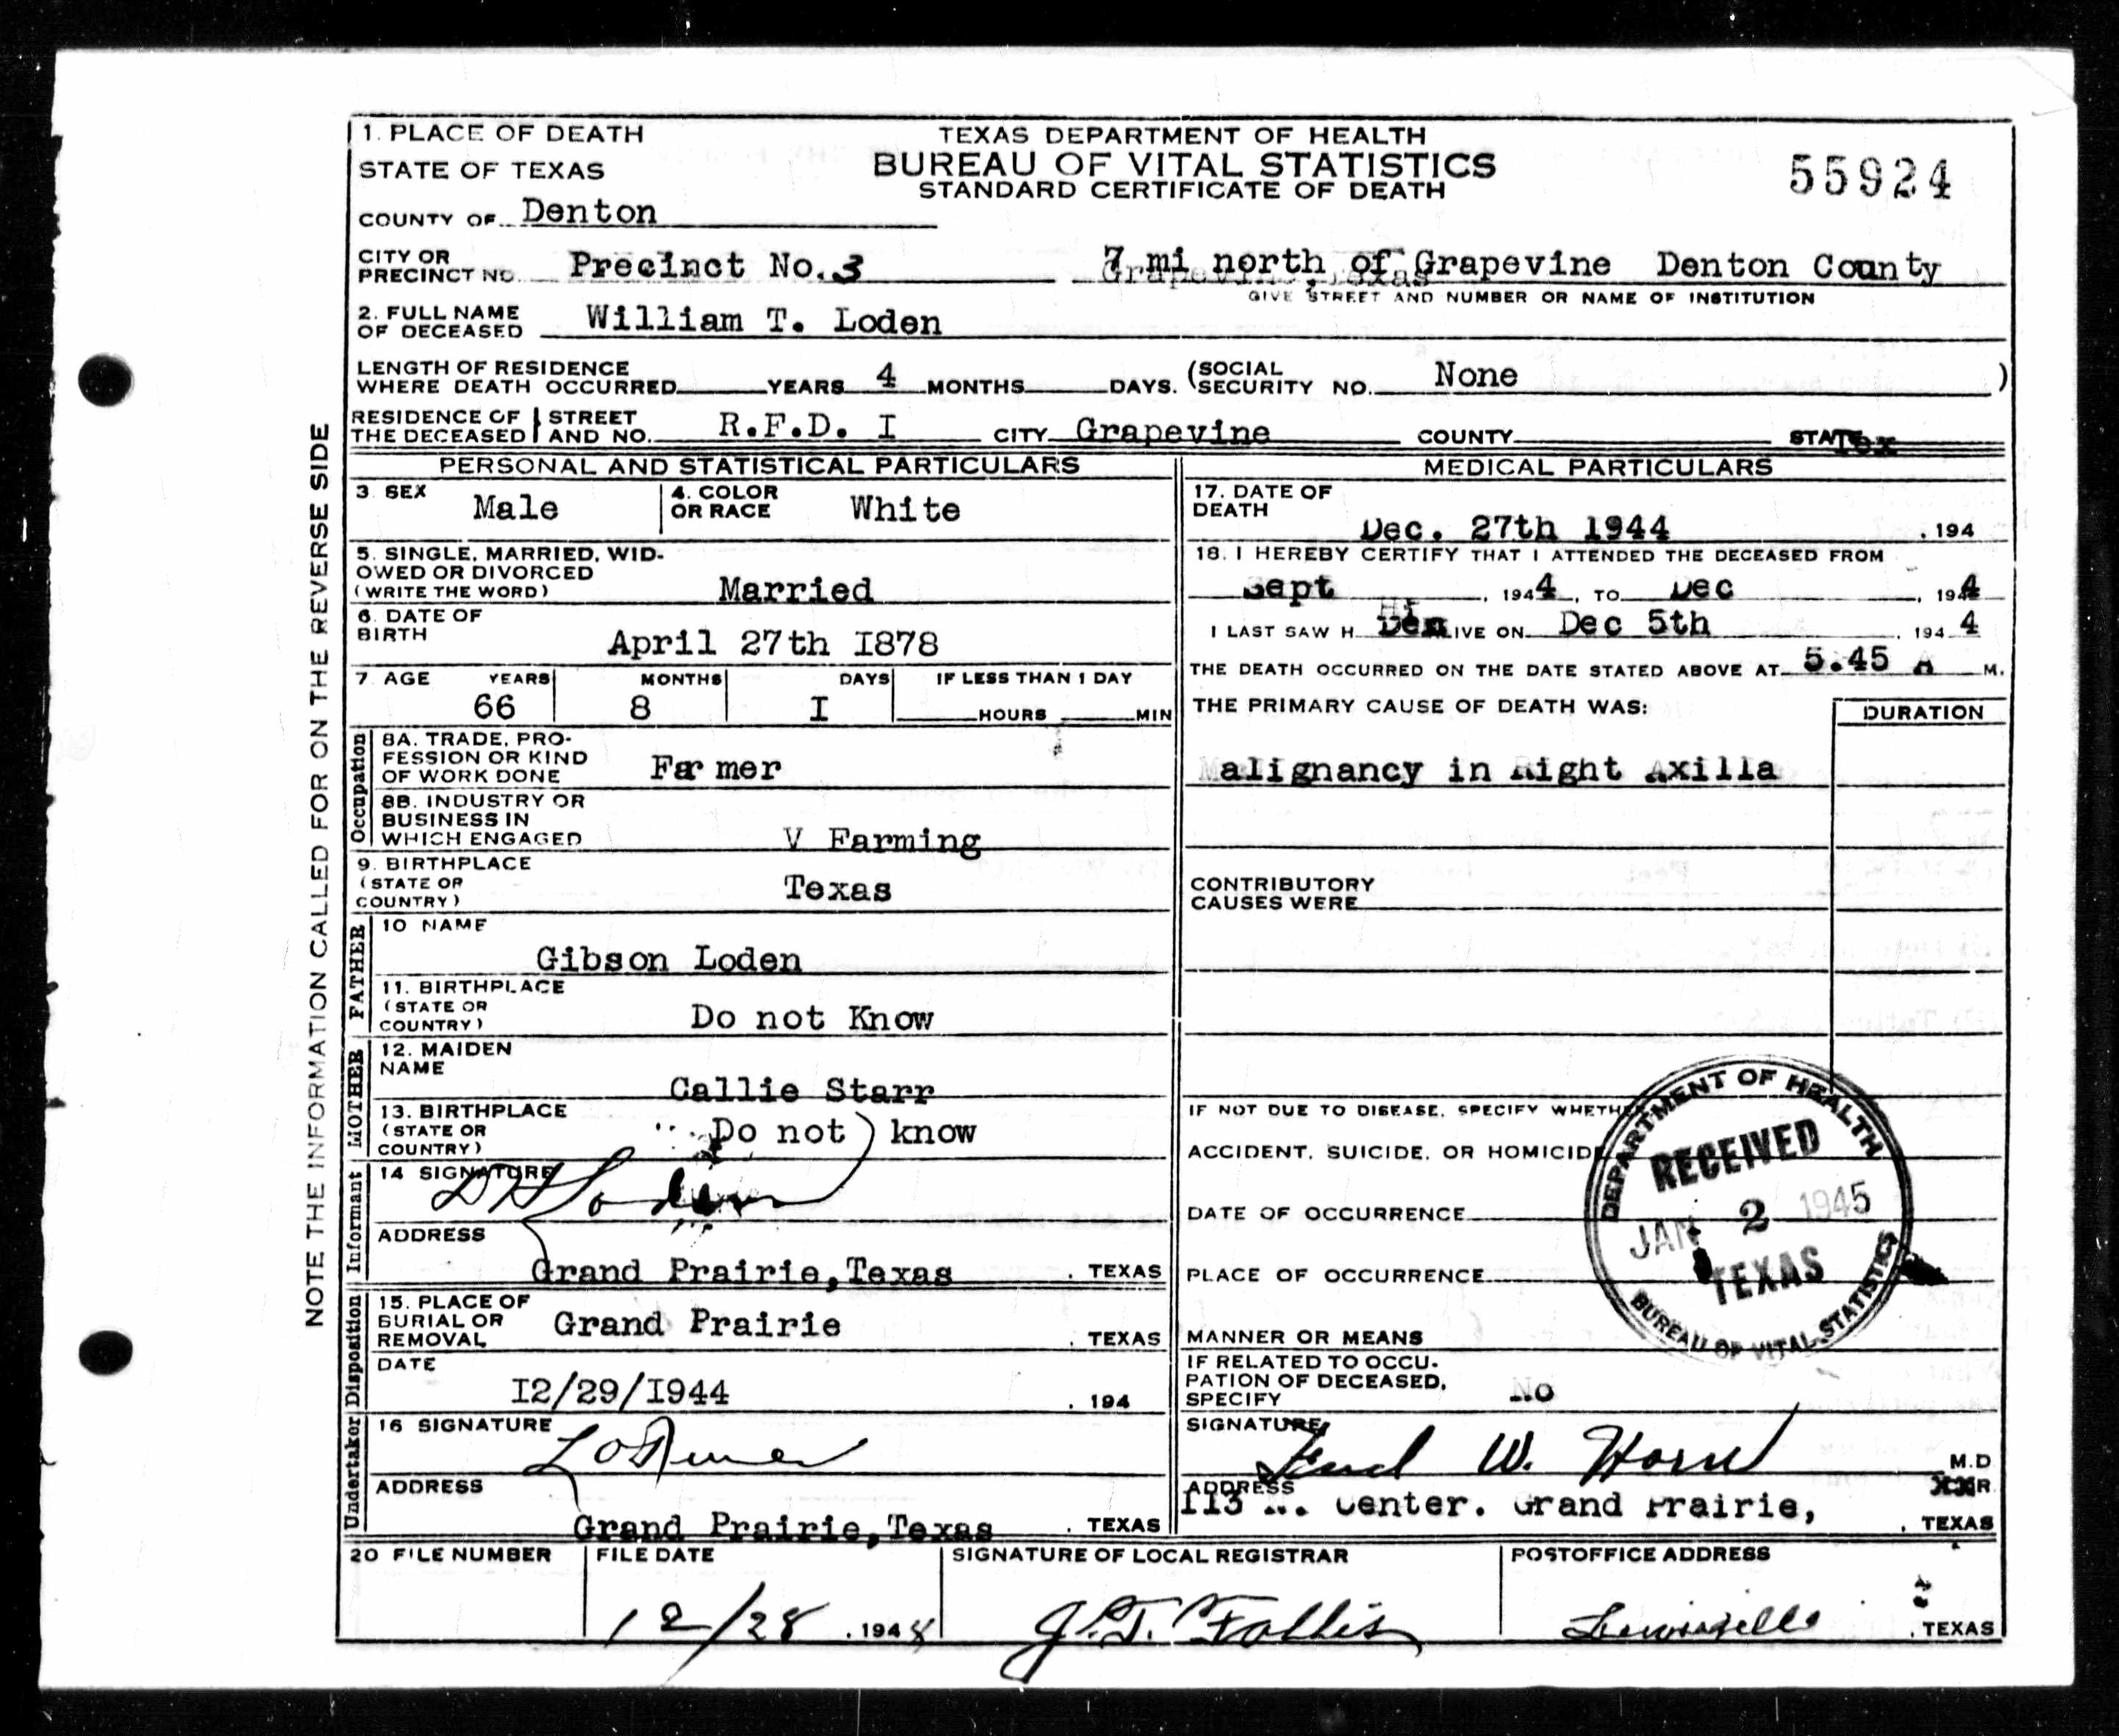 1. PLACE OF DEATH
STATE OF TEXAS
COUNTY OF Denton
TEXAS DEPARTMENT OF HEALTH
BUREAU OF VITAL STATISTICS
STANDARD CERTIFICATE OF DEATH
55924
CITY OR
PRECINCT NO. Precinct No. 3
7 mi north of Grapevine Denton County
Grapevine, Texas
GIVE STREET AND NUMBER OR NAME OF INSTITUTION
2. FULL NAME
OF DECEASED William T. Loden
LENGTH OF RESIDENCE
WHERE DEATH OCCURRED YEARS 4 MONTHS DAYS. (SOCIAL SECURITY NO. None )
RESIDENCE OF THE DECEASED STREET AND NO. R.F.D. I CITY Grapevine COUNTY STATE Tex
NOTE THE INFORMATION CALLED FOR ON THE REVERSE SIDE
PERSONAL AND STATISTICAL PARTICULARS
3. SEX Male
4. COLOR OR RACE White
5. SINGLE, MARRIED, WID-
OWED OR DIVORCED
(WRITE THE WORD) Married
6. DATE OF
BIRTH April 27th I878
7 AGE YEARS MONTHS DAYS IF LESS THAN 1 DAY
66 8 I HOURS MIN
Occupation
8A. TRADE, PRO-
FESSION OR KIND
OF WORK DONE Farmer
8B. INDUSTRY OR
BUSINESS IN
WHICH ENGAGED V Farming
9. BIRTHPLACE
(STATE OR
COUNTRY) Texas
FATHER
10 NAME
Gibson Loden
11. BIRTHPLACE
(STATE OR
COUNTRY) Do not Know
MOTHER
12. MAIDEN
NAME
Callie Starr
13. BIRTHPLACE
(STATE OR
COUNTRY) Do not know
Informant
14 SIGNATURE
D H Loden
ADDRESS
Grand Prairie, Texas . TEXAS
Disposition
15. PLACE OF
BURIAL OR
REMOVAL Grand Prairie . TEXAS
DATE
I2/29/I944 . 194
Undertaker
16 SIGNATURE
ADDRESS
Grand Prairie, Texas . TEXAS
MEDICAL PARTICULARS
17. DATE OF
DEATH Dec. 27th 1944 . 194
18. I HEREBY CERTIFY THAT I ATTENDED THE DECEASED FROM
Sept , 1944, TO Dec , 194 4
I LAST SAW H ALIVE ON Dec 5th , 194 4
THE DEATH OCCURRED ON THE DATE STATED ABOVE AT 5.45 A M.
THE PRIMARY CAUSE OF DEATH WAS:
DURATION
Malignancy in Right Axilla
CONTRIBUTORY
CAUSES WERE
IF NOT DUE TO DISEASE, SPECIFY WHETHER
ACCIDENT, SUICIDE, OR HOMICIDE
DATE OF OCCURRENCE
PLACE OF OCCURRENCE
MANNER OR MEANS
DEPARTMENT OF HEALTH
RECEIVED
JAN 2 1945
TEXAS
BUREAU OF VITAL STATISTICS
IF RELATED TO OCCU-
PATION OF DECEASED,
SPECIFY No
SIGNATURE
W. Horn M.D
ADDRESS
113 N. Center. Grand Prairie, . TEXAS
20 FILE NUMBER
FILE DATE
12/28 . 194
SIGNATURE OF LOCAL REGISTRAR
J. T. Follis
POSTOFFICE ADDRESS
Lewisville . TEXAS